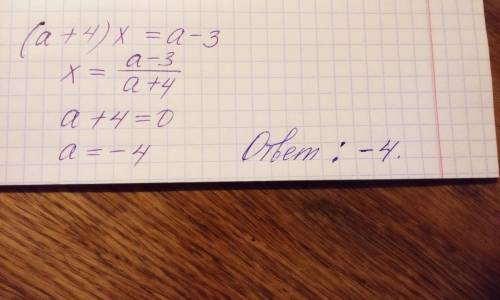 (a+4)x = a-3
x = \frac{a-3}{a+4}
a+4=0
a=-4
Ответ: -4.